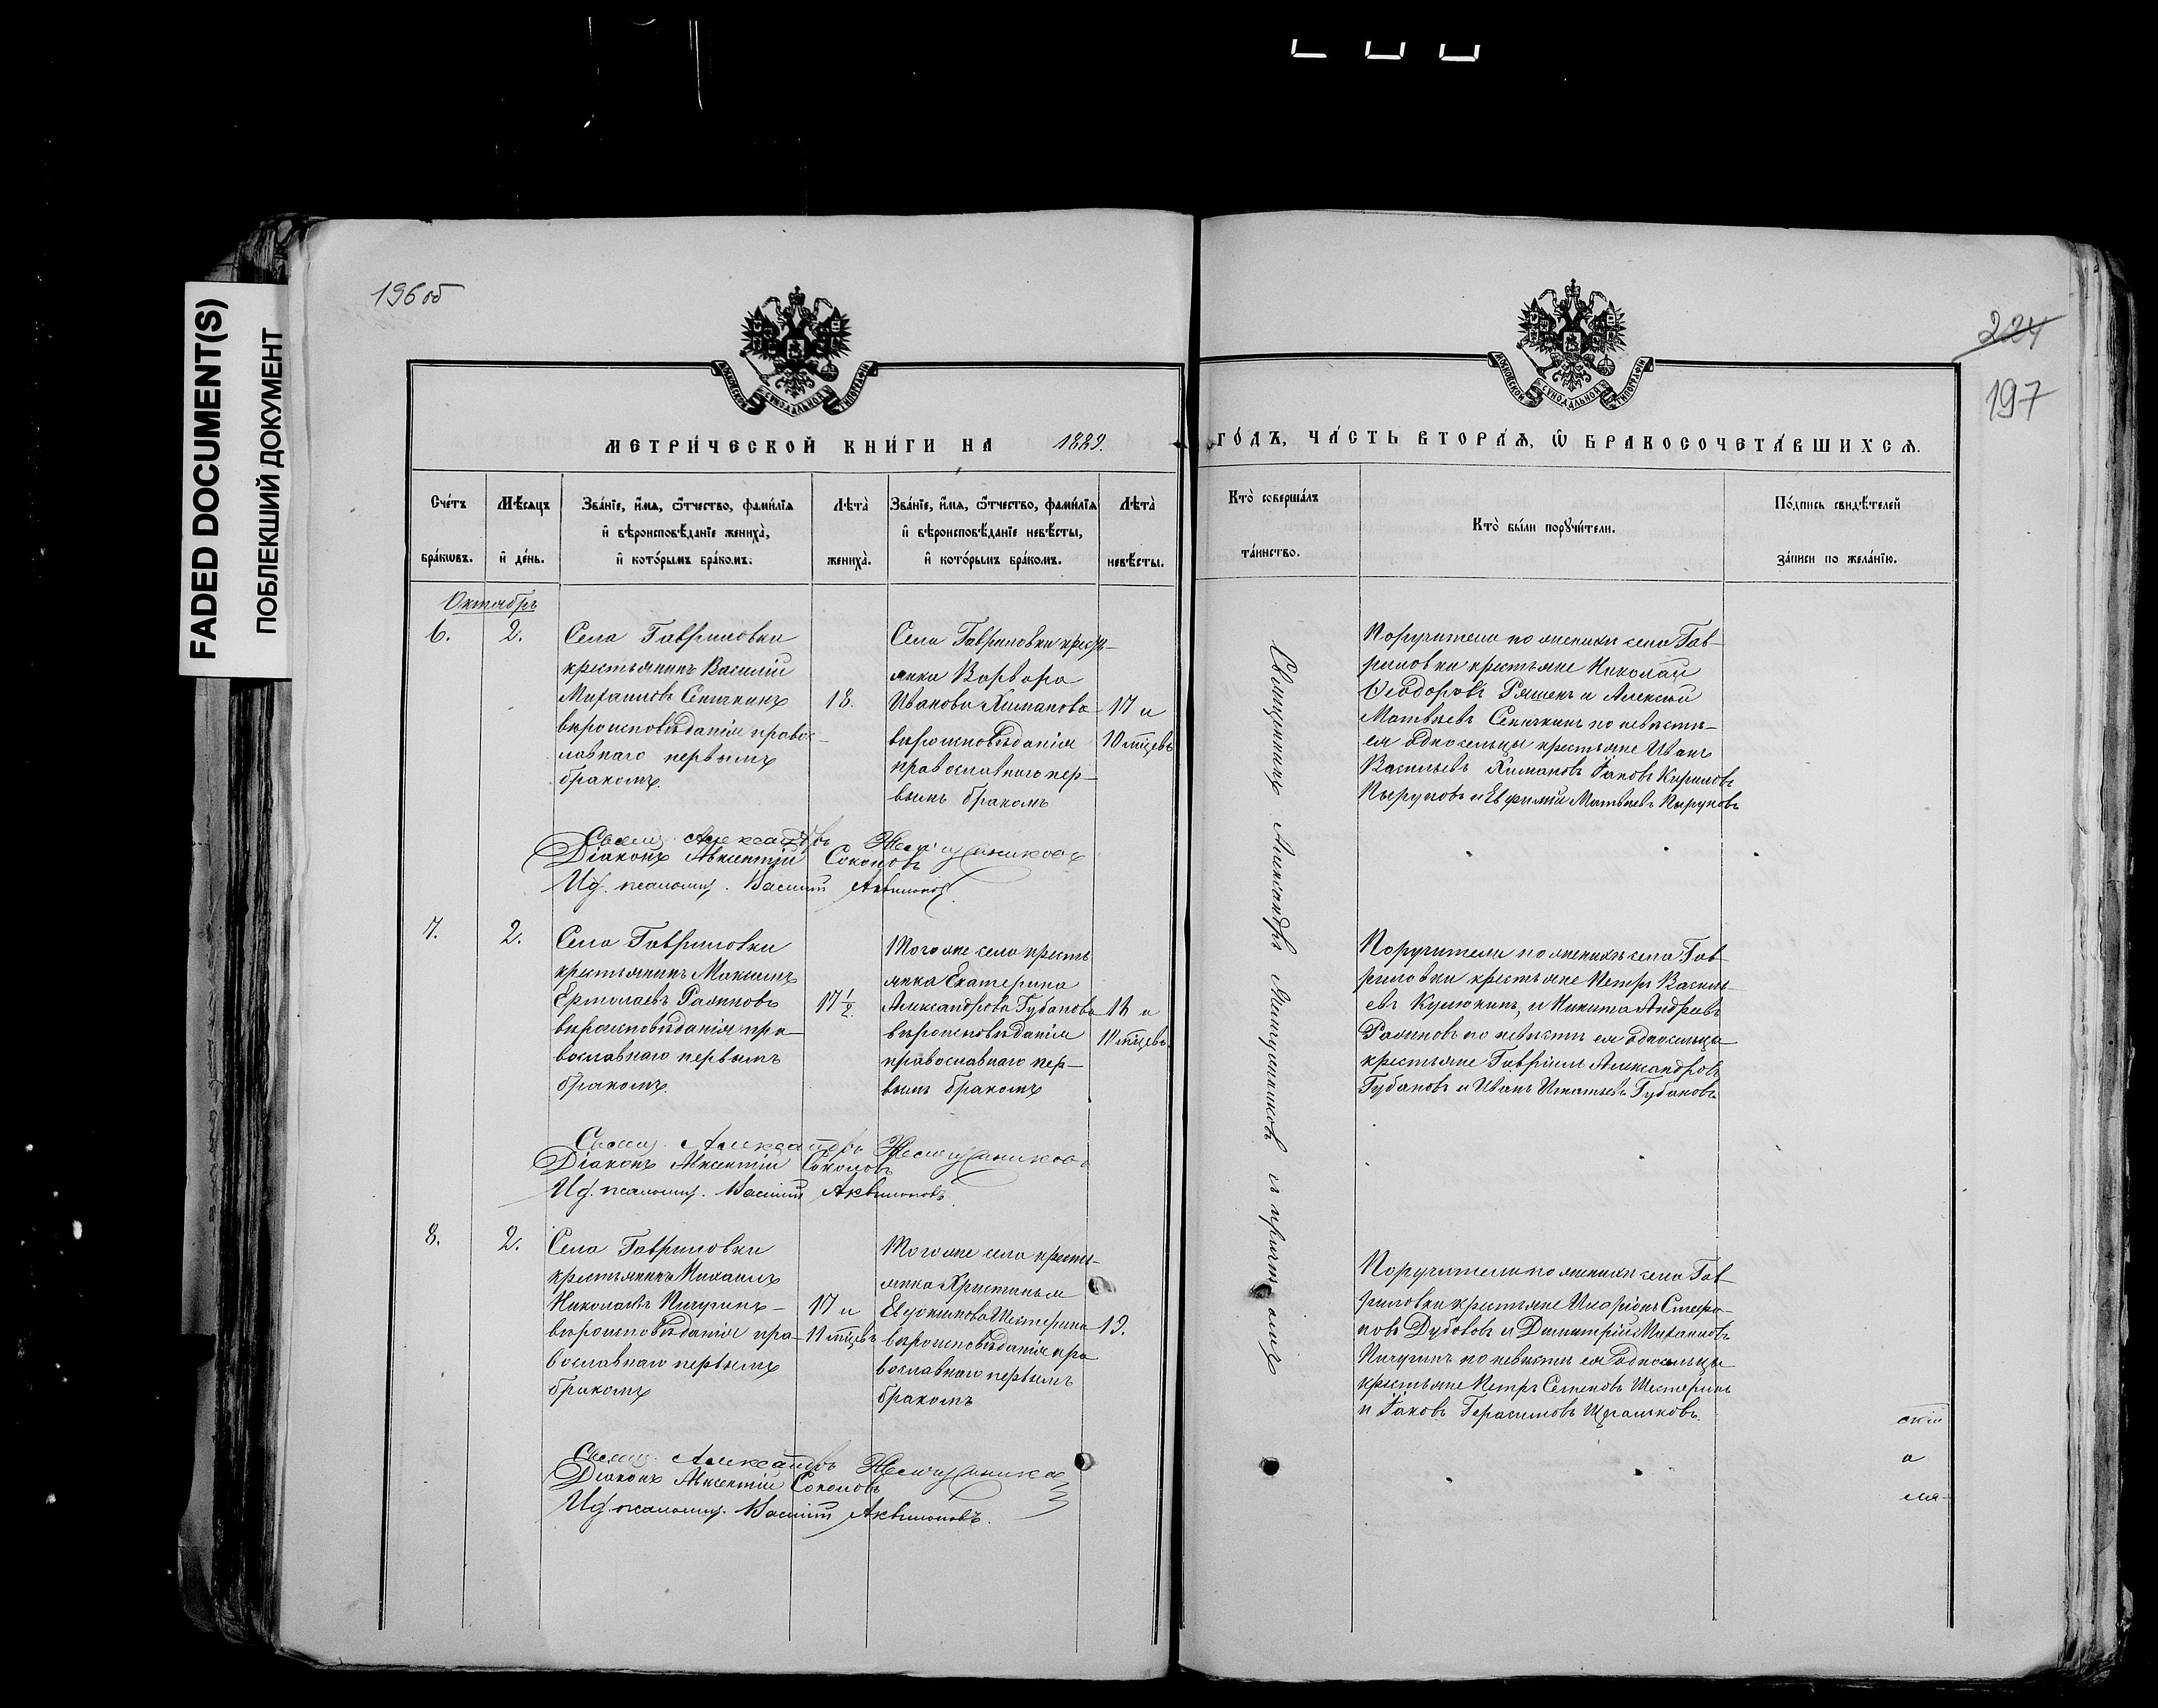 FADED DOCUMENT(S)
ПОБЛЕКШИЙ ДОКУМЕНТ
196 об
224
197
МОСКОВСКОЙ СѴНОДАЛЬНОЙ ТИПОГРАФІИ
МОСКОВСКОЙ СѴНОДАЛЬНОЙ ТИПОГРАФІИ
МЕТРИ́ЧЕСКОЙ КНИ́ГИ НА 1889.
ГО́ДЪ, ЧА́СТЬ ВТОРА́Ѧ, Ѿ БРАКОСОЧЕТА́ВШИХСѦ.
Сче́тъ бра́кѡвъ.
Мѣ́сѧцъ и҆ де́нь.
Зва́нїе, и҆́мѧ, ѻ҆́тчество, фами́лїѧ
и҆ вѣроисповѣ́данїе жениха̀,
и҆ кото́рымъ бра́комъ.
Лѣ́та жениха̀.
Зва́нїе, и҆́мѧ, ѻ҆́тчество, фами́лїѧ
и҆ вѣроисповѣ́данїе невѣ́сты,
и҆ кото́рымъ бра́комъ.
Лѣ́та невѣ́сты.
Кто̀ соверша́лъ
та́инство.
Кто̀ бы́ли порꙋчи́тели.
По́дпись свидѣ́телей
за́писи по жела́нїю.
Октябрь
6.
2.
Села Гавриловки
крестьянинъ Василій
Михаиловъ Сеничкинъ
вѣроисповѣданія правос-
лавнаго первымъ
бракомъ.
18.
Села Гавриловки крестъ-
янка Варвара
Иванова Химанова
вѣроисповѣданія
православнаго пер-
вымъ бракомъ
17 и
10 мѣцевъ
Священникъ Александръ с причтомъ
Поручители по женихѣ села Гав-
риловки крестьяне Николай
Ѳеодоровъ и Алексей
Матвѣевъ Сеничкинъ по невѣстѣ-
ея односельцы крестьяне Иванъ
Васильевъ Химановъ Іаковъ Кириловъ
и Евфимій Матвѣевъ
Свящ. Александръ
Діаконъ Авксентій Соколовъ
Ид. псаломщ. Василій Аквилоновъ.
7.
2.
Села Гавриловки
крестьянинъ Максимъ
Ермолаевъ
вѣроисповѣданія пра-
вославнаго первымъ
бракомъ.
17 1/2
Того же села кресть
янка Екатерина
Александрова Губанова
вѣроисповѣданія
православнаго пер-
вымъ бракомъ
мѣцевъ.
Поручители по женихѣ села Гав-
риловки крестьяне Петръ Василь-
евъ и Никита Андреевъ
по невѣстѣ ея односельцы
крестьяне Гавріилъ Александровъ
Губановъ и Иванъ Игнатьевъ Губановъ
Свящ. Александръ
Діаконъ Авксентій Соколовъ
Ид. псаломщ. Василій Аквилоновъ.
8.
2.
Села Гавриловки
крестьянинъ Михаилъ
Николаевъ Пичугинъ-
вѣроисповѣданія пра-
вославнаго первымъ
бракомъ
17 и
11 мѣцевъ
Того же села кресть-
янка Христинья
Евдокимова Шестерина
вѣроисповѣданія пра
вославнаго первымъ
бракомъ
19.
Поручители по женихѣ села Гав-
риловки крестьяне Иларіонъ Стефа-
новъ Дубововъ и Димитрій Михаиловъ
Пичугинъ по невѣстѣ ея односельцы
крестьяне Петръ Семеновъ Шестеринъ
и Іаковъ Герасимовъ
Свящ. Александръ
Діаконъ Авксентій Соколовъ
Ид. псаломщ. Василій Аквилоновъ.
скій
а